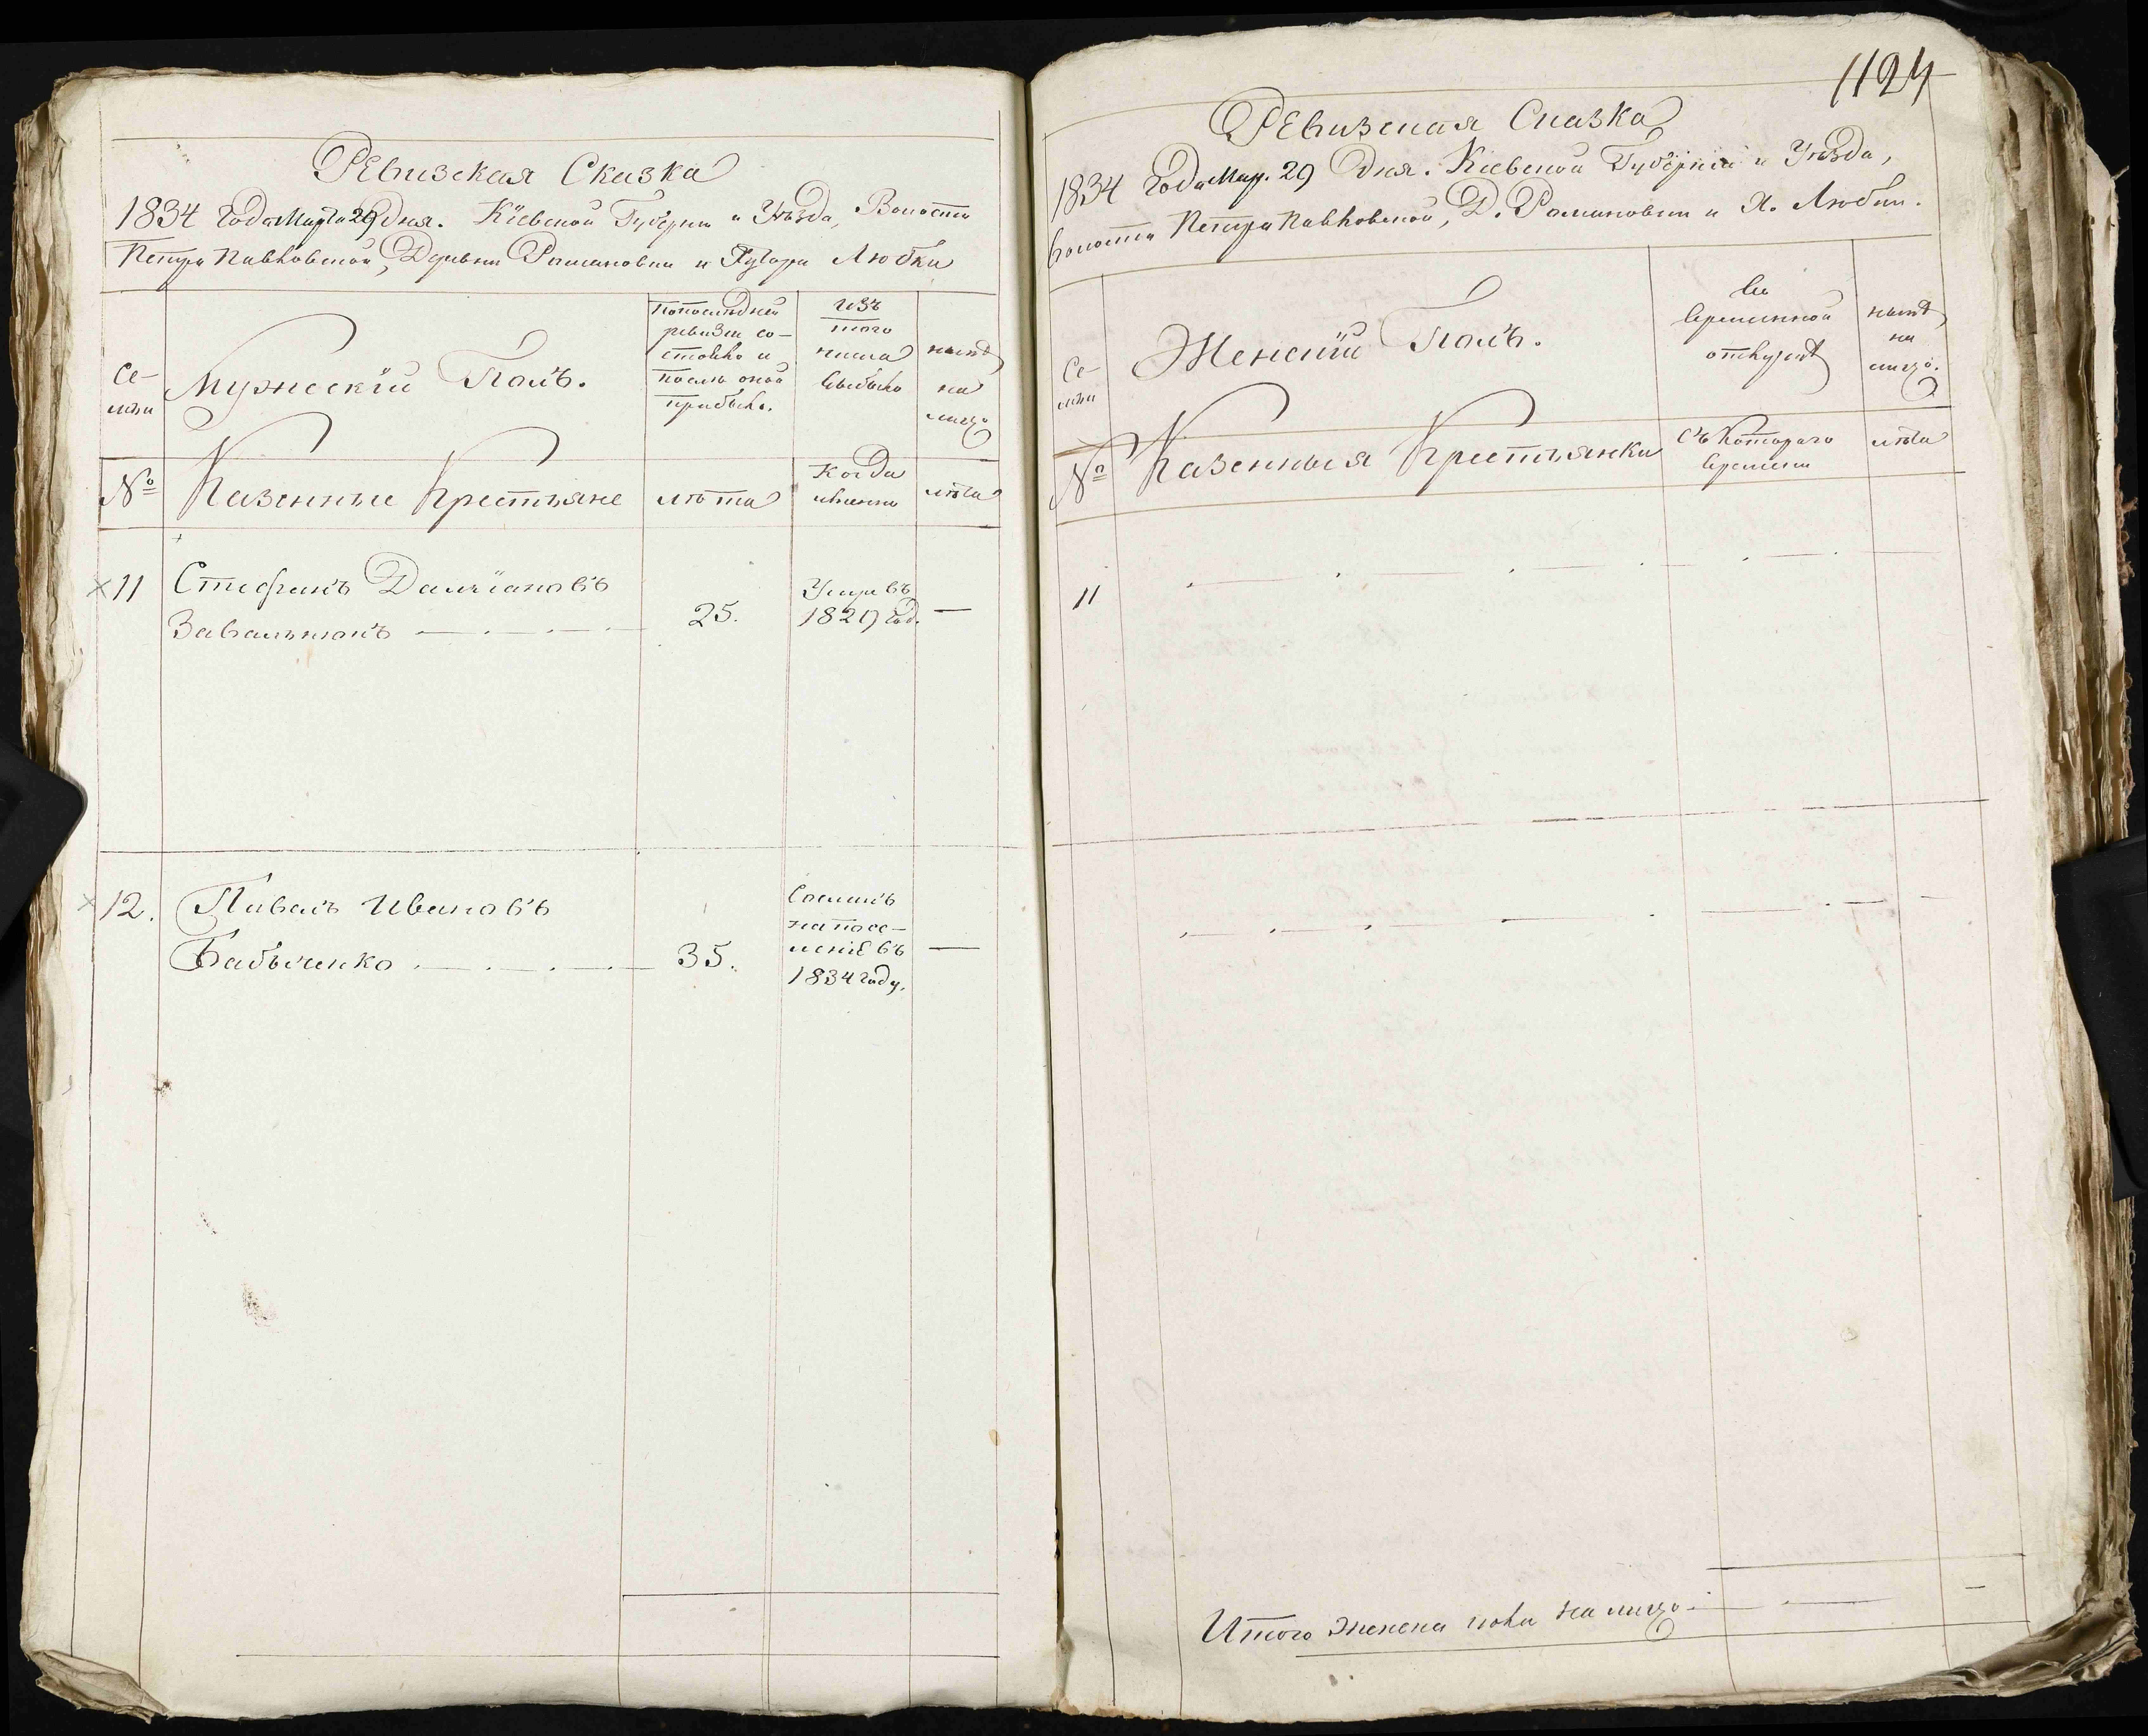 Ревизская Сказка
1834 Года Марта 29 Дня. Кіевской Губерни и Уѣзда, Волости
Петро Павловской, Деревни Романовки и Хутора Любки
Се-
мьи
Мужескій Полъ.
По последней
ревизіи со-
стояло и
после оной
прибыло.
изъ
того
числа
выбыло
нынѣ
на
лицо
№
Казенные Крестьяне
лѣта
Когда
именно
лѣта
11
Стефанъ Даміановъ
Завальнюкъ
25.
Умре въ
1829 год.
12.
Павелъ Ивановъ
Бабыченко
35.
Сосланъ
на посе-
леніе въ
1834 году.
1124
Ревизская Сказка
1834 Года Мар. 29 Дня. Кіевской Губерніи и Уѣзда,
Волости Петро Павловской, Д. Романовки и Х. Любки.
Се-
мьи
Женскій Полъ.
Во
временной
отлучкѣ
нынѣ
на
лицо.
№
Казенныя Крестьянки
съ котораго
времени
лѣта
11
Итого женска пола на лицо